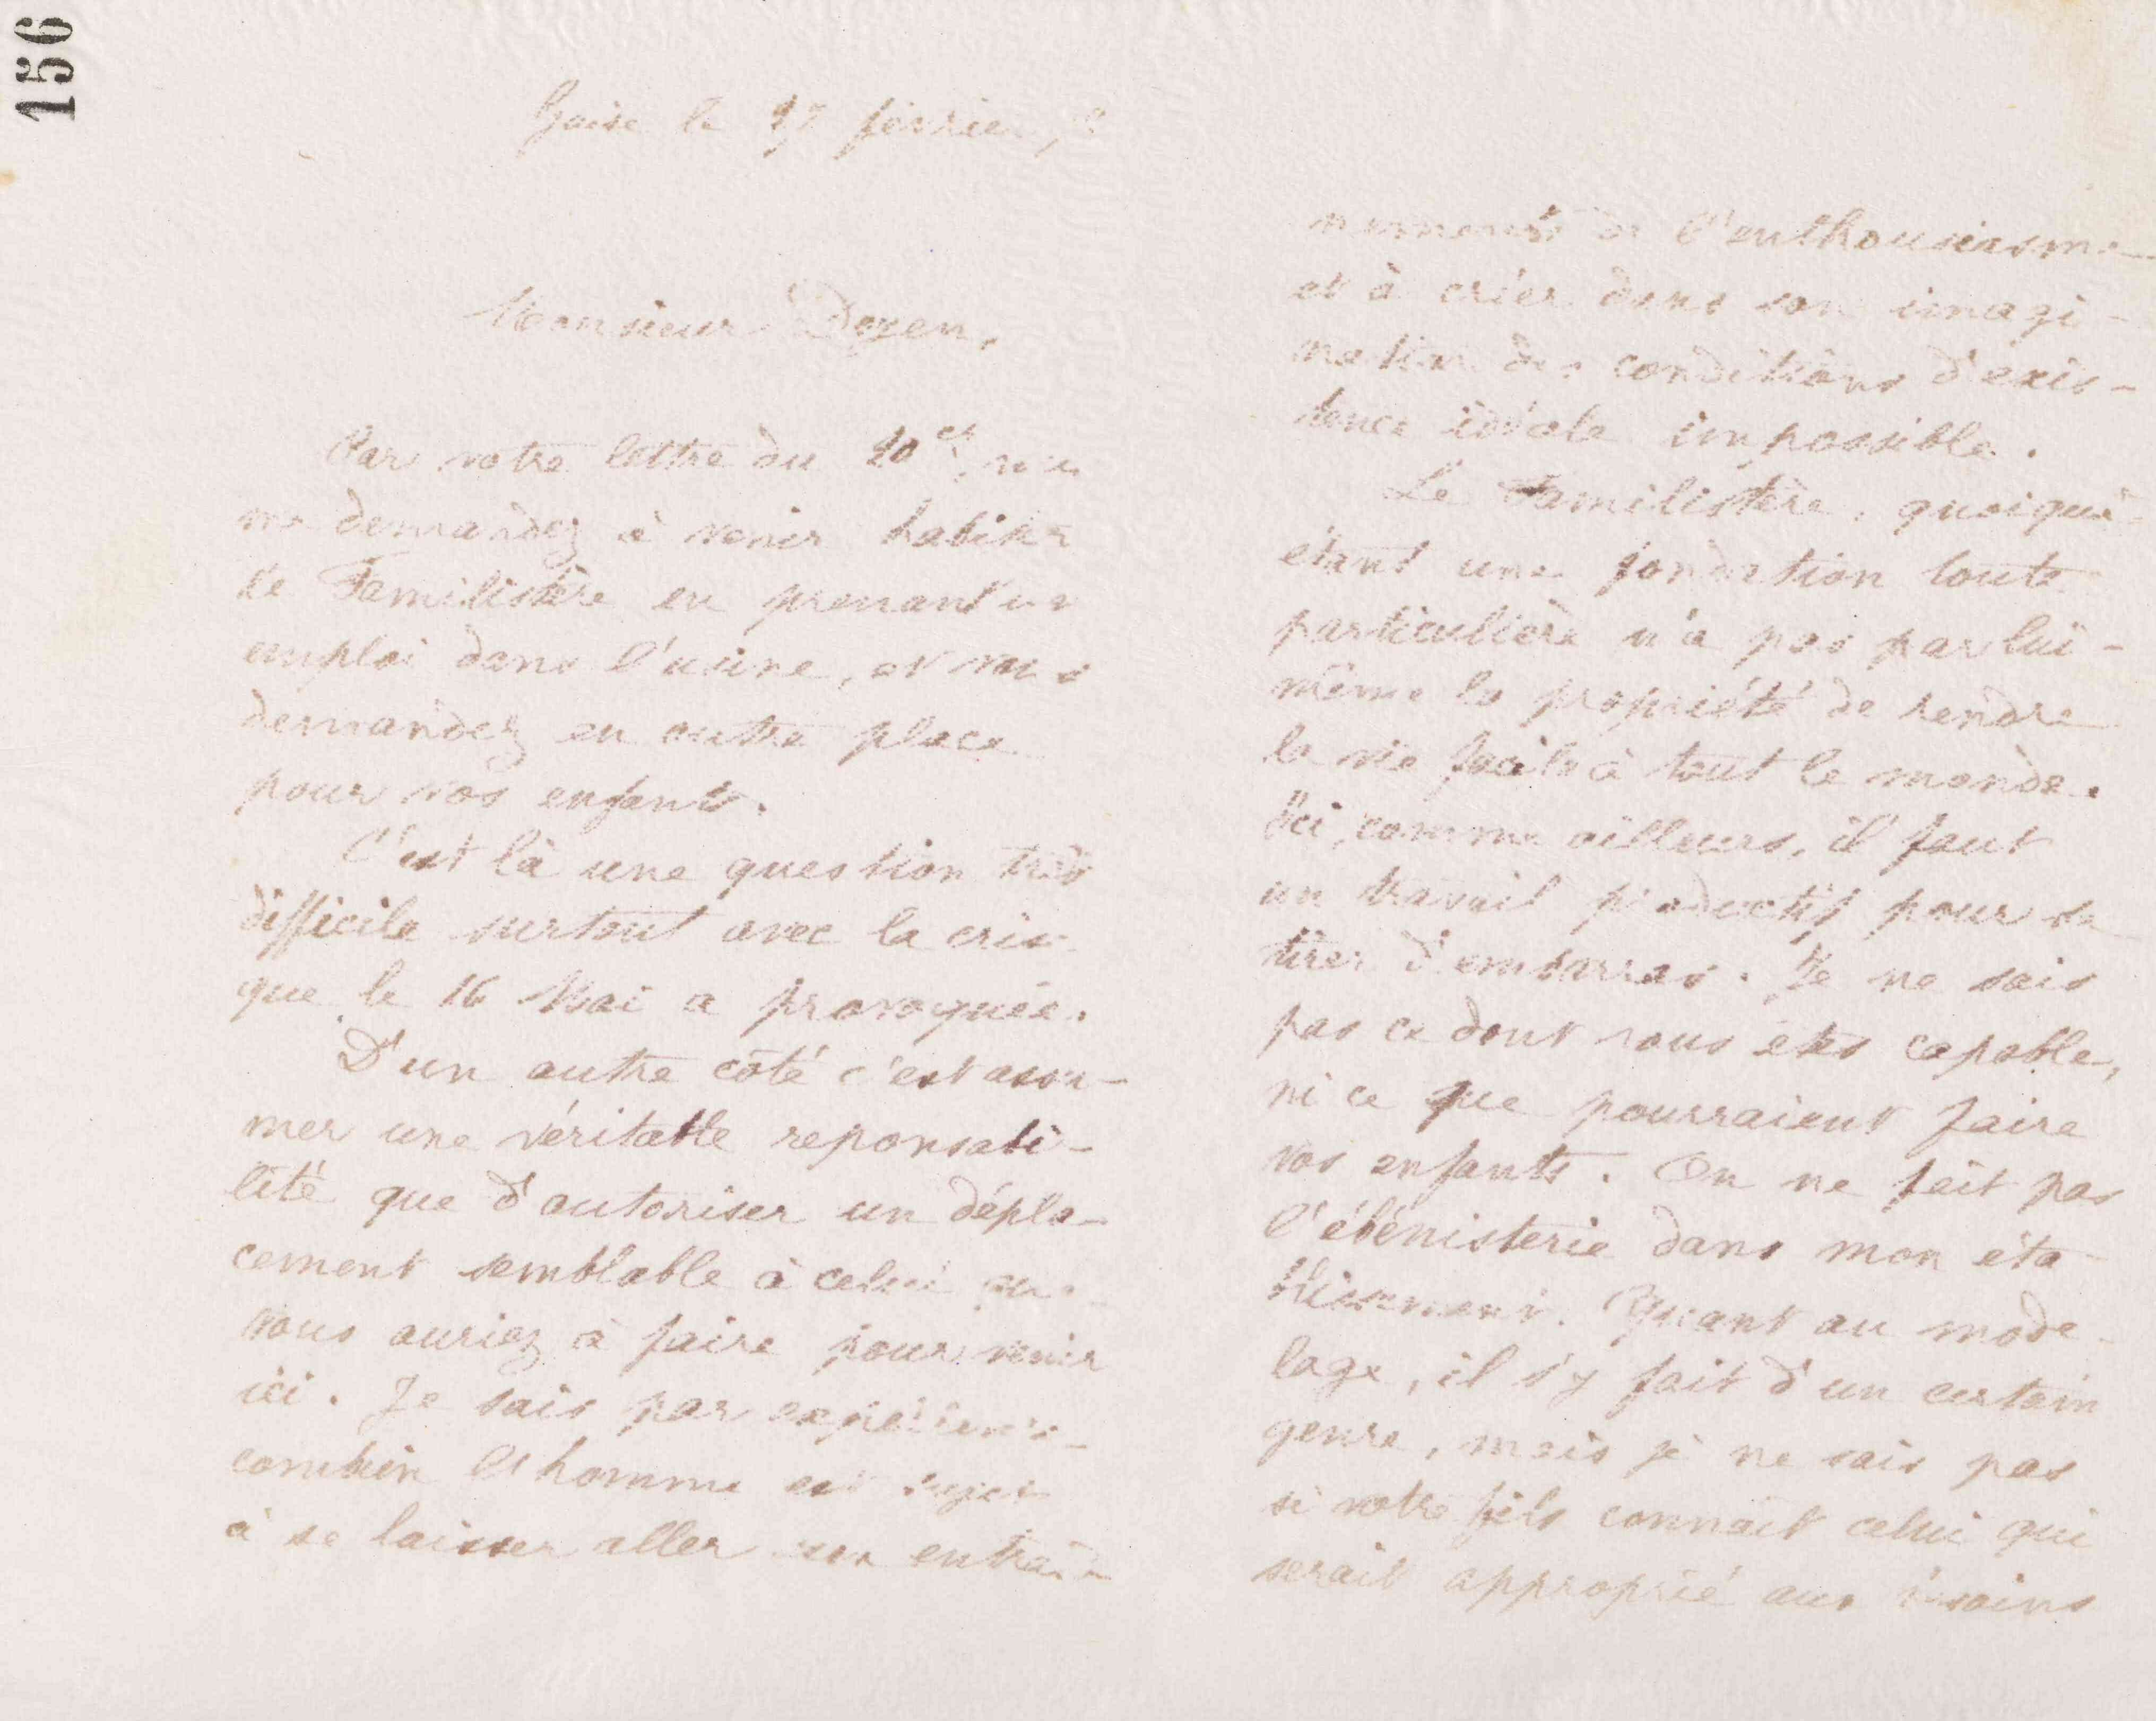 156
Guise le 27 février
Monsieur Doyen,
Par votre lettre du 20 ct, vous
me demandez à venir habiter
le Familistère en prenant un
emploi dans l'usine, et vous
demandez en outre place
pour vos enfants.
C'est là une question très
difficile surtout avec la crise
que le 16 Mai a provoquée.
D'un autre côté c'est assu-
mer une véritable reponsabi-
lité que d'autoriser un dépla-
cement semblable à celui que
vous auriez à faire pour venir
ici. Je sais par expérience
combien l'homme est sujet
à se laisser aller aux entraî-
nements de l'enthousiasme
et à créer dans son imagi-
nation des conditions d'exis-
tence idéale impossible.
Le Familistère, quoiqu'
étant une fondation toute
particulière n'a pas par lui-
même la propriété de rendre
la vie facile à tout le monde.
Ici, comme ailleurs, il faut
un travail productif pour se
tirer d'embarras. Je ne sais
pas ce dont vous êtes capable,
ni ce que pourraient faire
vos enfants. On ne fait pas
l'ébénisterie dans mon éta-
blissement. Quant au mode-
lage, il s'y fait d'un certain
genre, mais je ne sais pas
si votre fils connaît celui qui
serait approprié aux besoins